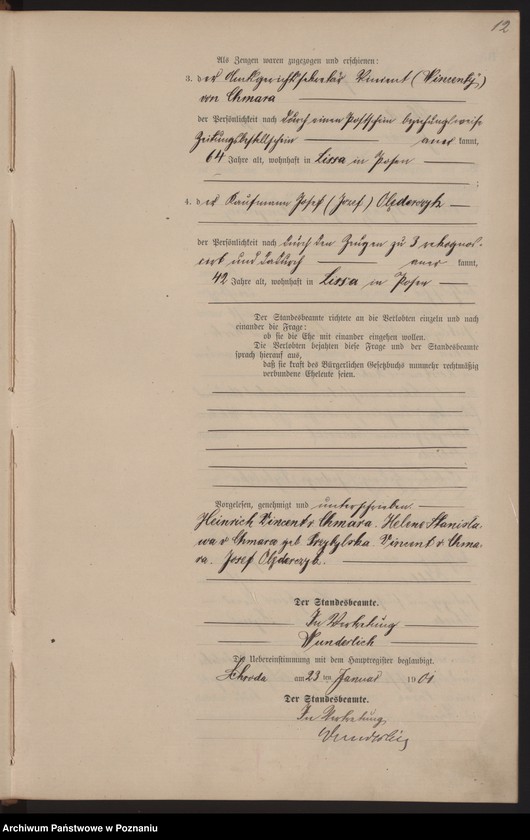 12
Als Zeugen waren zugezogen und erschienen:
3. der Amtsgerichtssekretär Vincent (Vincenty)
von Chmara
der Persönlichkeit nach durch einen Postschein beziehungsweise
Zeitungsbestellschein anerkannt,
64 Jahre alt, wohnhaft in Lissa in Posen
;
4. der Kaufmann Josef (Jozef)
der Persönlichkeit nach durch den Zeugen zu 3 rekognos-
cirt und dadurch anerkannt,
42 Jahre alt, wohnhaft in Lissa in Posen
Der Standesbeamte richtete an die Verlobten einzeln und nach
einander die Frage:
ob sie die Ehe mit einander eingehen wollen.
Die Verlobten bejahten diese Frage und der Standesbeamte
sprach hierauf aus,
daß sie kraft des Bürgerlichen Gesetzbuchs nunmehr rechtmäßig
verbundene Eheleute seien.
Vorgelesen, genehmigt und unterschrieben
Heinrich Vincent v Chmara. Helene Stanisla-
wa v Chmara geb. Przybylska. Vincent v. Chma-
ra. Josef
Der Standesbeamte.
In Vertretung
Wunderlich
Die Uebereinstimmung mit dem Hauptregister beglaubigt.
Schroda am 23 ten Januar 1901
Der Standesbeamte.
In Vertretung
Wunderlich
Archiwum Państwowe w Poznaniu